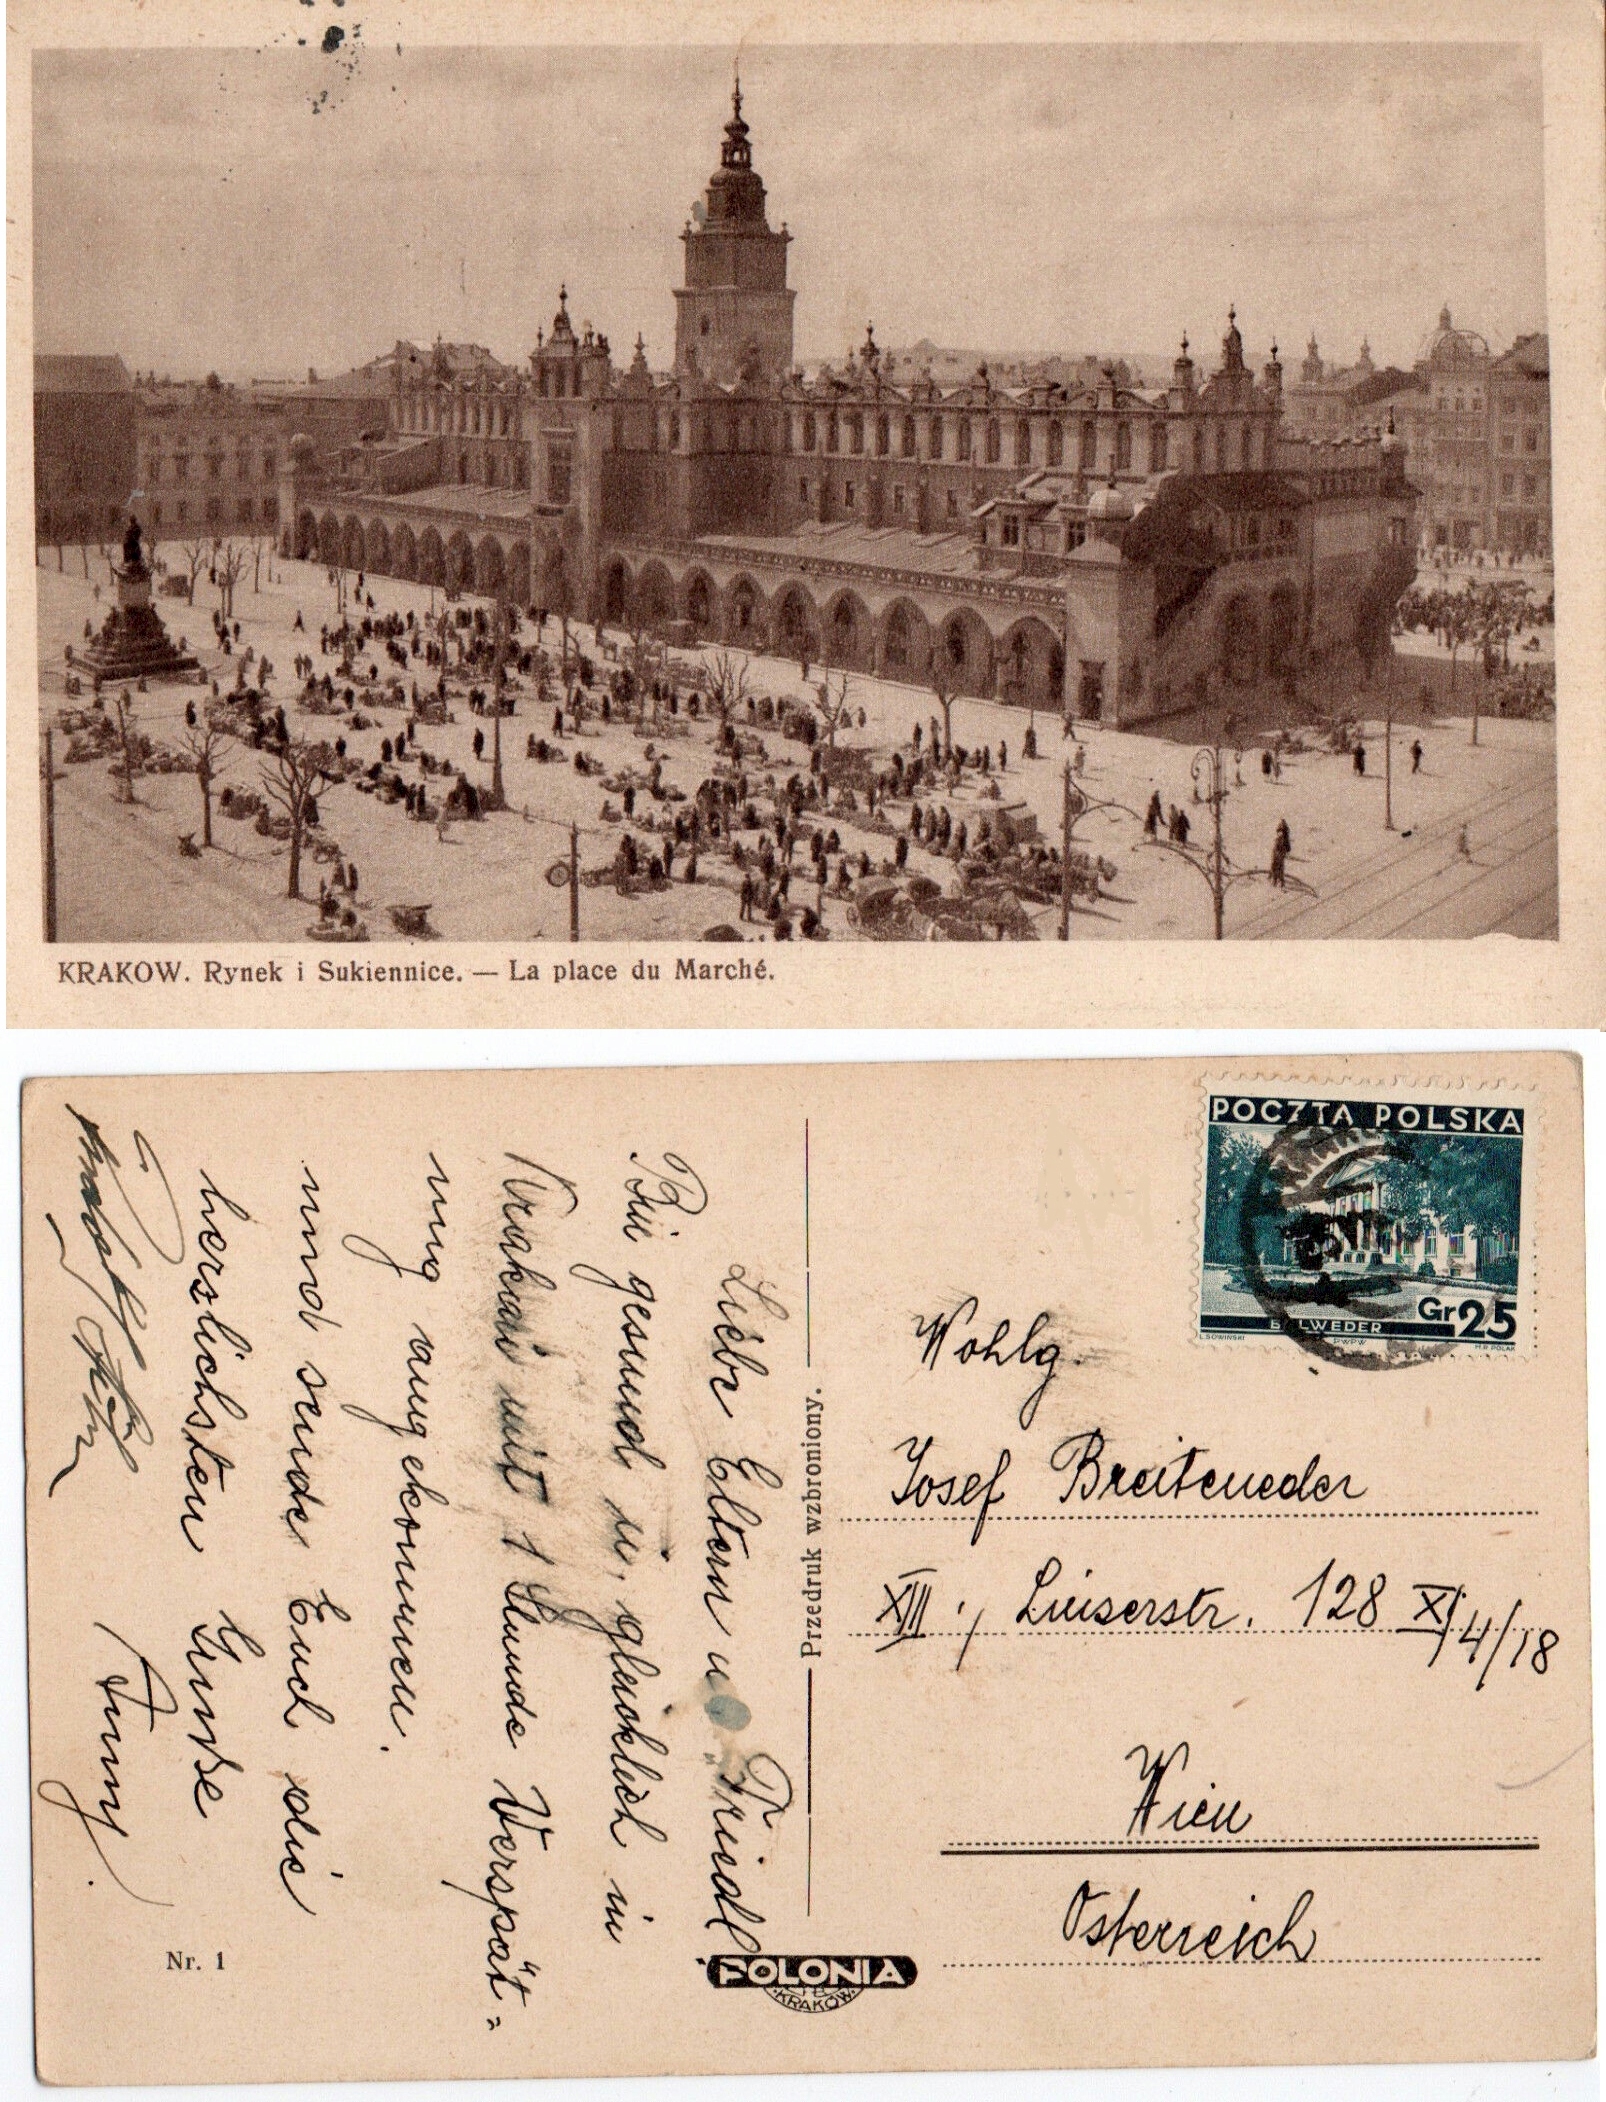 KRAKOW. Rynek i Sukiennice. — La place du Marché.
POCZTA POLSKA
BELWEDER
Gr 25
L. SOWINSKI
PWPW
M.R. POLAK
Wohlg.
Josef Breiteneder
XIII., Linzerstr. 128 XI/4/18
Wien
Österreich
Przedruk wzbroniony.
Liebe Eltern u. Friedl
Bin gesund u. glücklich in
Krakau mit 1 Stunde Verspät=
ung angekommen.
und sende Euch die
herzlichsten Grüße
Fanny.
Nr. 1
POLONIA
KRAKÓW